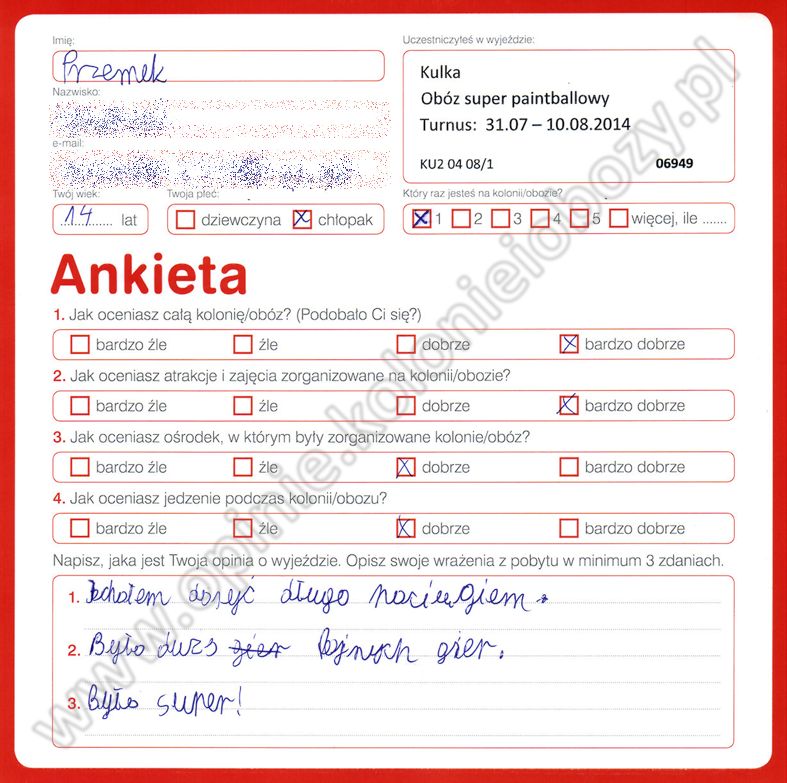 Imię:
Uczestniczyłeś w wyjeździe:
Przemek
Kulka
Obóz super paintballowy
Turnus: 31.07 – 10.08.2014
KU2 04 08/1 06949
Nazwisko:
e-mail:
Twój wiek:
Twoja płeć:
Który raz jesteś na kolonii/obozie?
14 lat
dziewczyna x chłopak
x 1 2 3 4 5 więcej, ile .......
Ankieta
1. Jak oceniasz całą kolonię/obóz? (Podobało Ci się?)
bardzo źle źle dobrze x bardzo dobrze
2. Jak oceniasz atrakcje i zajęcia zorganizowane na kolonii/obozie?
bardzo źle źle dobrze x bardzo dobrze
3. Jak oceniasz ośrodek, w którym były zorganizowane kolonie/obóz?
bardzo źle źle x dobrze bardzo dobrze
4. Jak oceniasz jedzenie podczas kolonii/obozu?
bardzo źle źle x dobrze bardzo dobrze
Napisz, jaka jest Twoja opinia o wyjeździe. Opisz swoje wrażenia z pobytu w minimum 3 zdaniach.
1. Jechałem dosyć długo pociągiem.
2. Było dużo gier fajnych gier.
3. Było super!
www.opinie.kolonieiobozy.pl